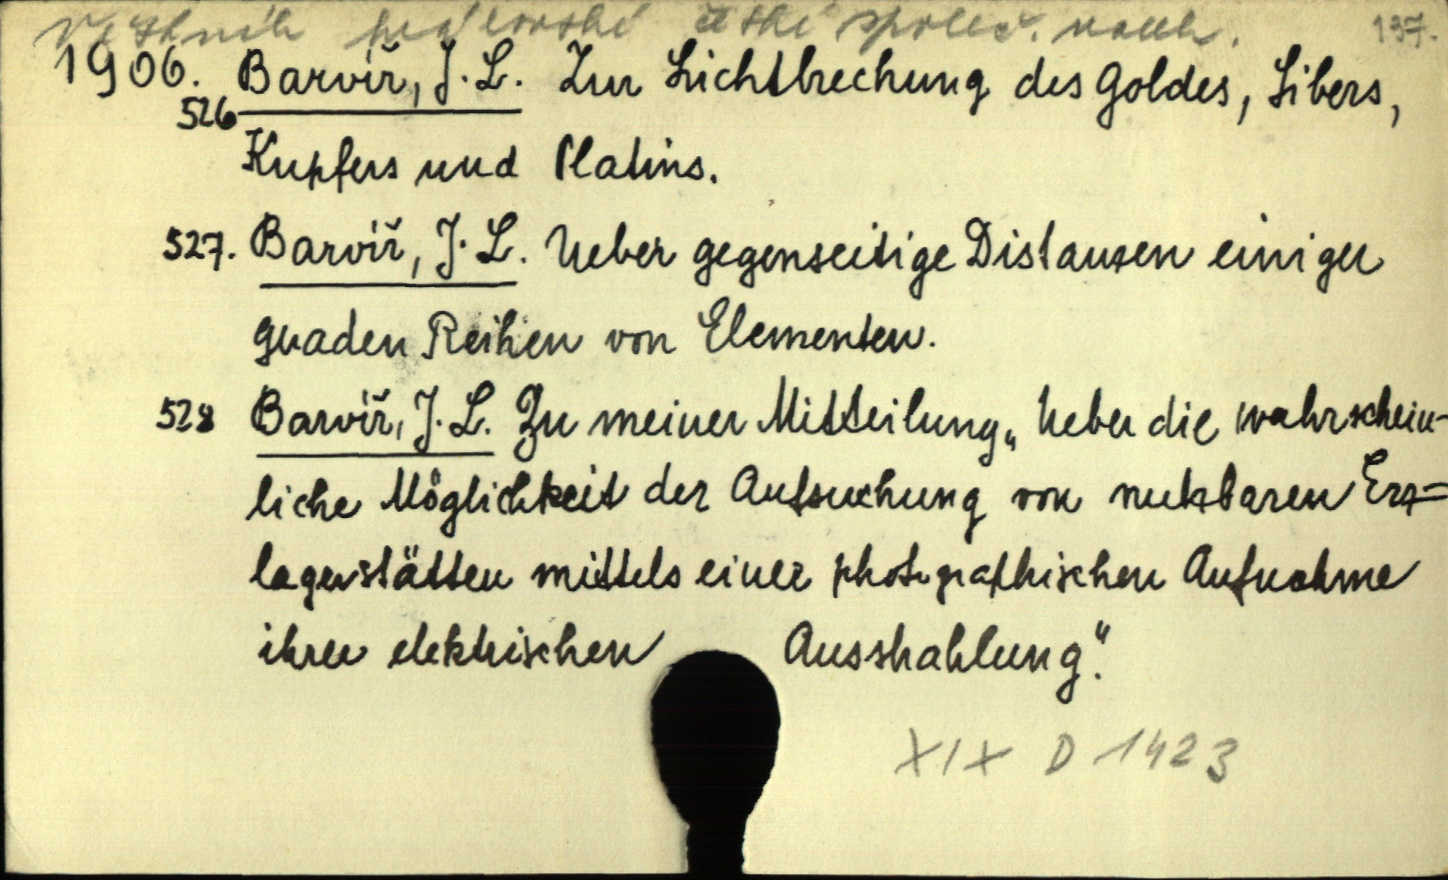 Věstník královské české společ. nauk. 137.
1906. Barvíř, J. L. Zur Lichtbrechung des Goldes, Silbers,
526
Kupfers und Platins.
527. Barvíř, J. L. Ueber gegenseitige Distanzen einiger
geraden Reihen von Elementen.
528 Barvíř, J. L. Zu meiner Mitteilung „Ueber die wahrschein-
liche Möglichkeit der Aufsuchung von nutzbaren Erz=
lagerstätten mittels einer photographischen Aufnahme
ihrer elektrischen Ausstrahlung."
XIX D 1423